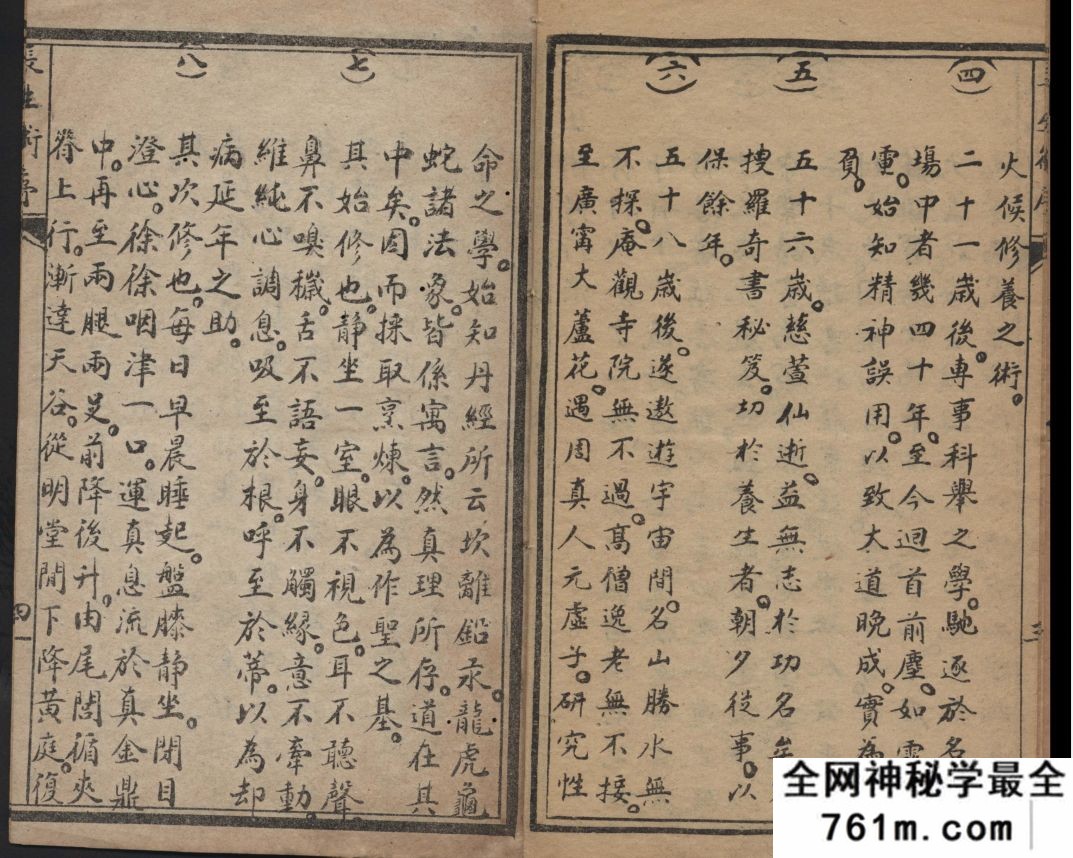 (四)
火候修養之術。
二十一歲後。專事科舉之學。馳逐於名
場中者幾四十年。至今迴首前塵。如
電。始知精神誤用。以致大道晚成。實為
負。
(五)
五十六歲。慈萱仙逝。益無志於功名
搜羅奇書秘笈。切於養生者。朝夕從事。以
保餘年。
(六)
五十八歲後。遂遨遊宇宙間。名山勝水無
不探。庵觀寺院無不過。高僧逸老無不接。
至廣甯大蘆花。遇周真人元虛子。研究性
命之學。始知丹經所云坎離鉛汞。龍虎龜
蛇諸法象。皆係寓言。然真理所存。道在其
中矣。因而採取烹煉。以為作聖之基。
(七)
其始修也。静坐一室。眼不視色。耳不聽聲。
鼻不嗅穢。舌不語妄。身不觸緣。意不牽動。
維純心調息。吸至於根。呼至於蒂。以為却
病延年之助。
(八)
其次修也。每日早晨睡起。盤膝静坐。閉目
澄心。徐徐咽津一口。運真息流於真金鼎
中。再至兩腿兩足。前降後升。由尾閭循夾
脊上行。漸達天谷。從明堂間下降黃庭。復
長生術序
四
全网神秘学最全
761m.com